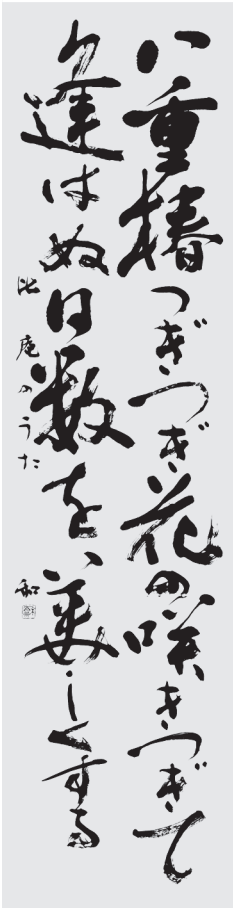 八重椿つぎつぎ花の咲きつぎて
逢はぬ日数を美しくする
庵のうた
和